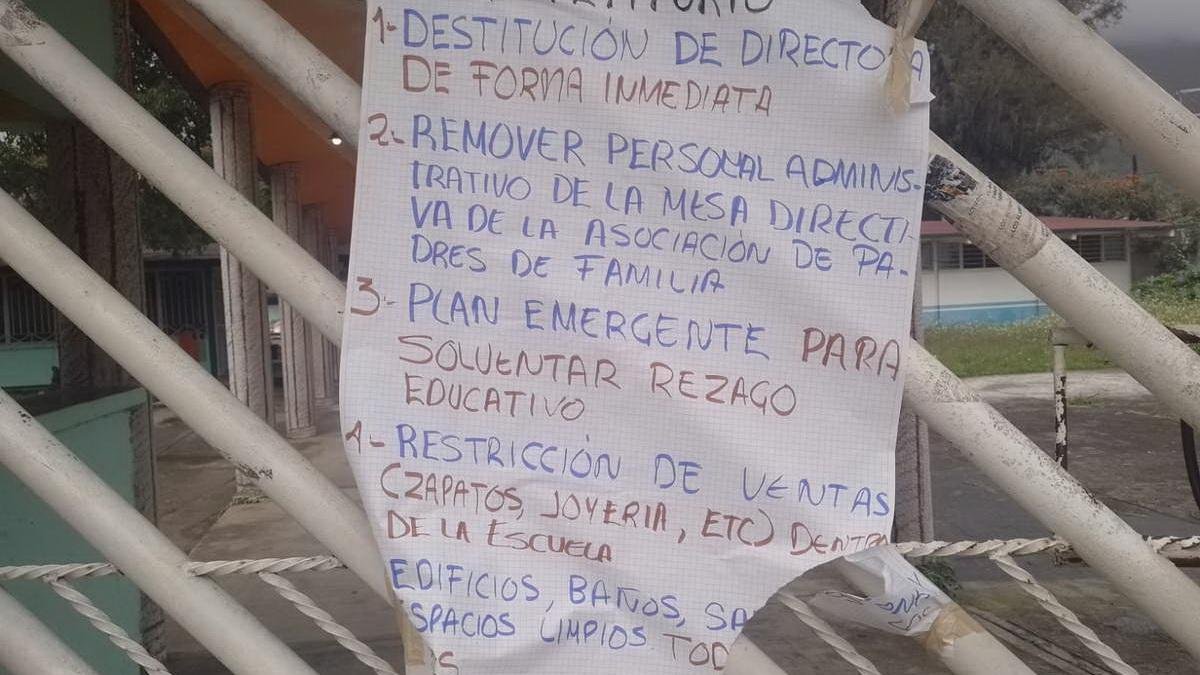 1.- DESTITUCIÓN DE DIRECTORA
DE FORMA INMEDIATA
2.- REMOVER PERSONAL ADMINIS-
TRATIVO DE LA MESA DIRECTI-
VA DE LA ASOCIACIÓN DE PA-
DRES DE FAMILIA
3.- PLAN EMERGENTE PARA
SOLVENTAR REZAGO
EDUCATIVO
4.- RESTRICCIÓN DE VENTAS
(ZAPATOS, JOYERIA, ETC) DENTRO
DE LA ESCUELA
EDIFICIOS, BAÑOS, SA
ESPACIOS LIMPIOS. TOD